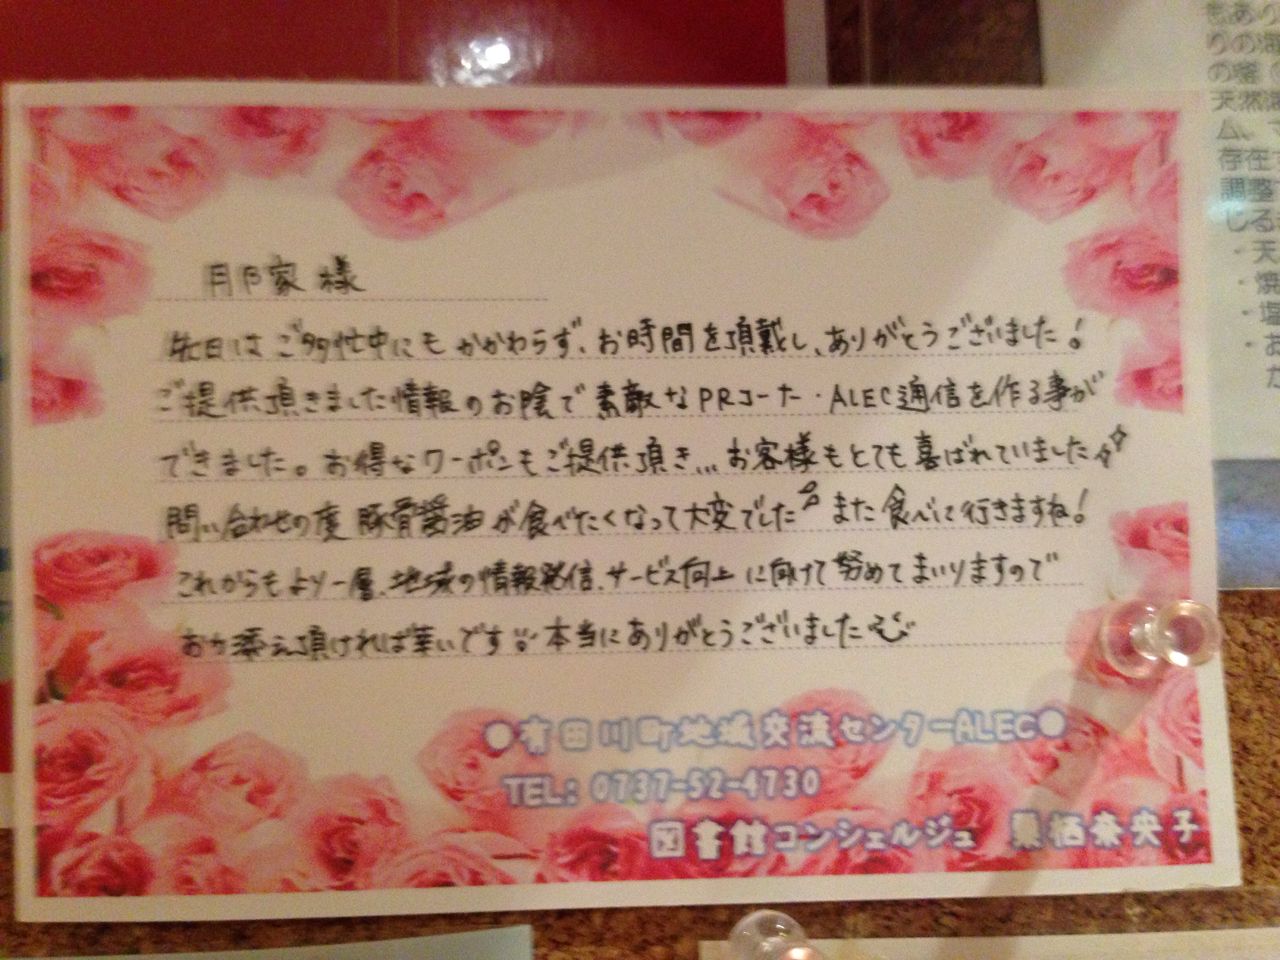 月戸家 様
先日はご多忙中にもかかわらず、お時間を頂戴し、ありがとうございました!
ご提供頂きました情報のお陰で素敵なPRコーナー・ALEC通信を作る事が
できました。お得なクーポンもご提供頂き… お客様もとても喜ばれていました
問い合わせの度 豚骨醤油が食べたくなって大変でした また食べに行きますね!
これからもより一層、地域の情報発信、サービス向上に向けて努めてまいりますので
お力添え頂ければ幸いです 本当にありがとうございました
●有田川町地域交流センターALEC●
TEL: 0737-52-4730
図書館コンシェルジュ 栗栖奈央子
りの
の
天然
ム、
存在
調整
じる
・天
・焼
・塩
・お